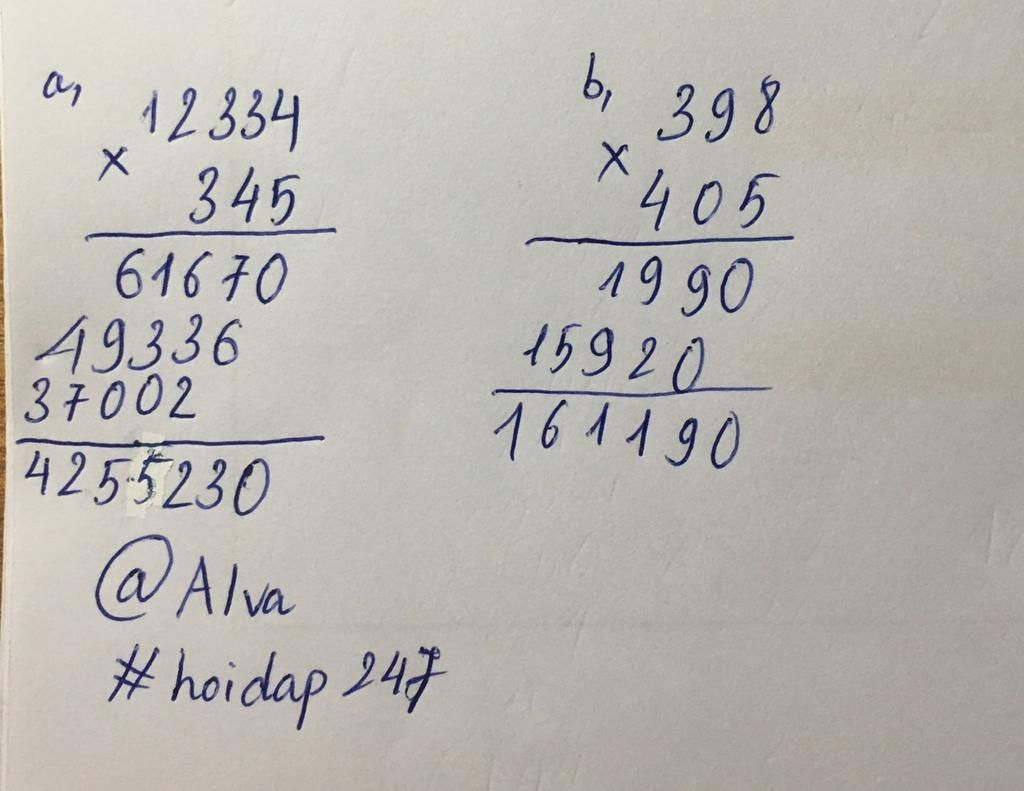 a,
12334
x
345
61670
49336
37002
4255230
b,
398
x
405
1990
15920
161190
@Alva
#hoidap 247